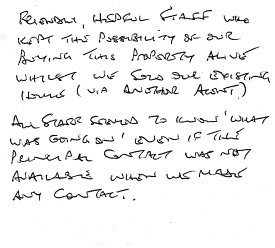 FRIENDLY, HELPFUL STAFF WHO
KEPT THE POSSIBILITY OF OUR
BUYING THIS PROPERTY ALIVE
WHILST WE SOLD OUR EXISTING
HOUSE (VIA ANOTHER AGENT!)
ALL STAFF SEEMED TO KNOW 'WHAT
WAS GOING ON' EVEN IF THE
PRINCIPAL CONTACT WAS NOT
AVAILABLE WHEN WE MADE
ANY CONTACT.